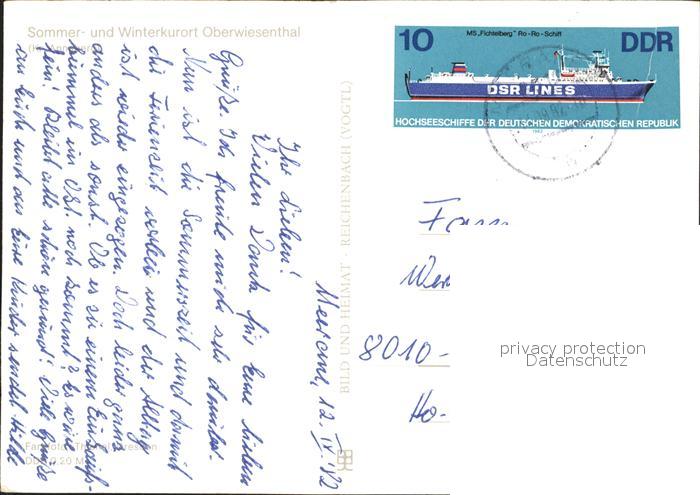 Sommer- und Winterkurort Oberwiesenthal
MS „Fichtelberg" Ro-Ro-Schiff
10 DDR
DSR LINES
HOCHSEESCHIFFE DER DEUTSCHEN DEMOKRATISCHEN REPUBLIK
1982
BILD UND HEIMAT · REICHENBACH (VOGTL)
Meerane, 12. IX. 82
Ihr Lieben!
Vielen Dank für Eure lieben
Grüße. Ich freute mich sehr darüber.
Nun ist die Sommerszeit und damit
die Ferienzeit vorbei und der Alltag
ist wieder eingezogen. Doch leider ganz
anders als sonst. Ob es zu einem Einkaufs-
bummel im Okt. noch kommt? Es wäre
fein! Bleibt alle schön gesund! Viele Grüße
an Euch und an Eure Kinder sendet
Fam
8010-
Ho-
privacy protection
Datenschutz